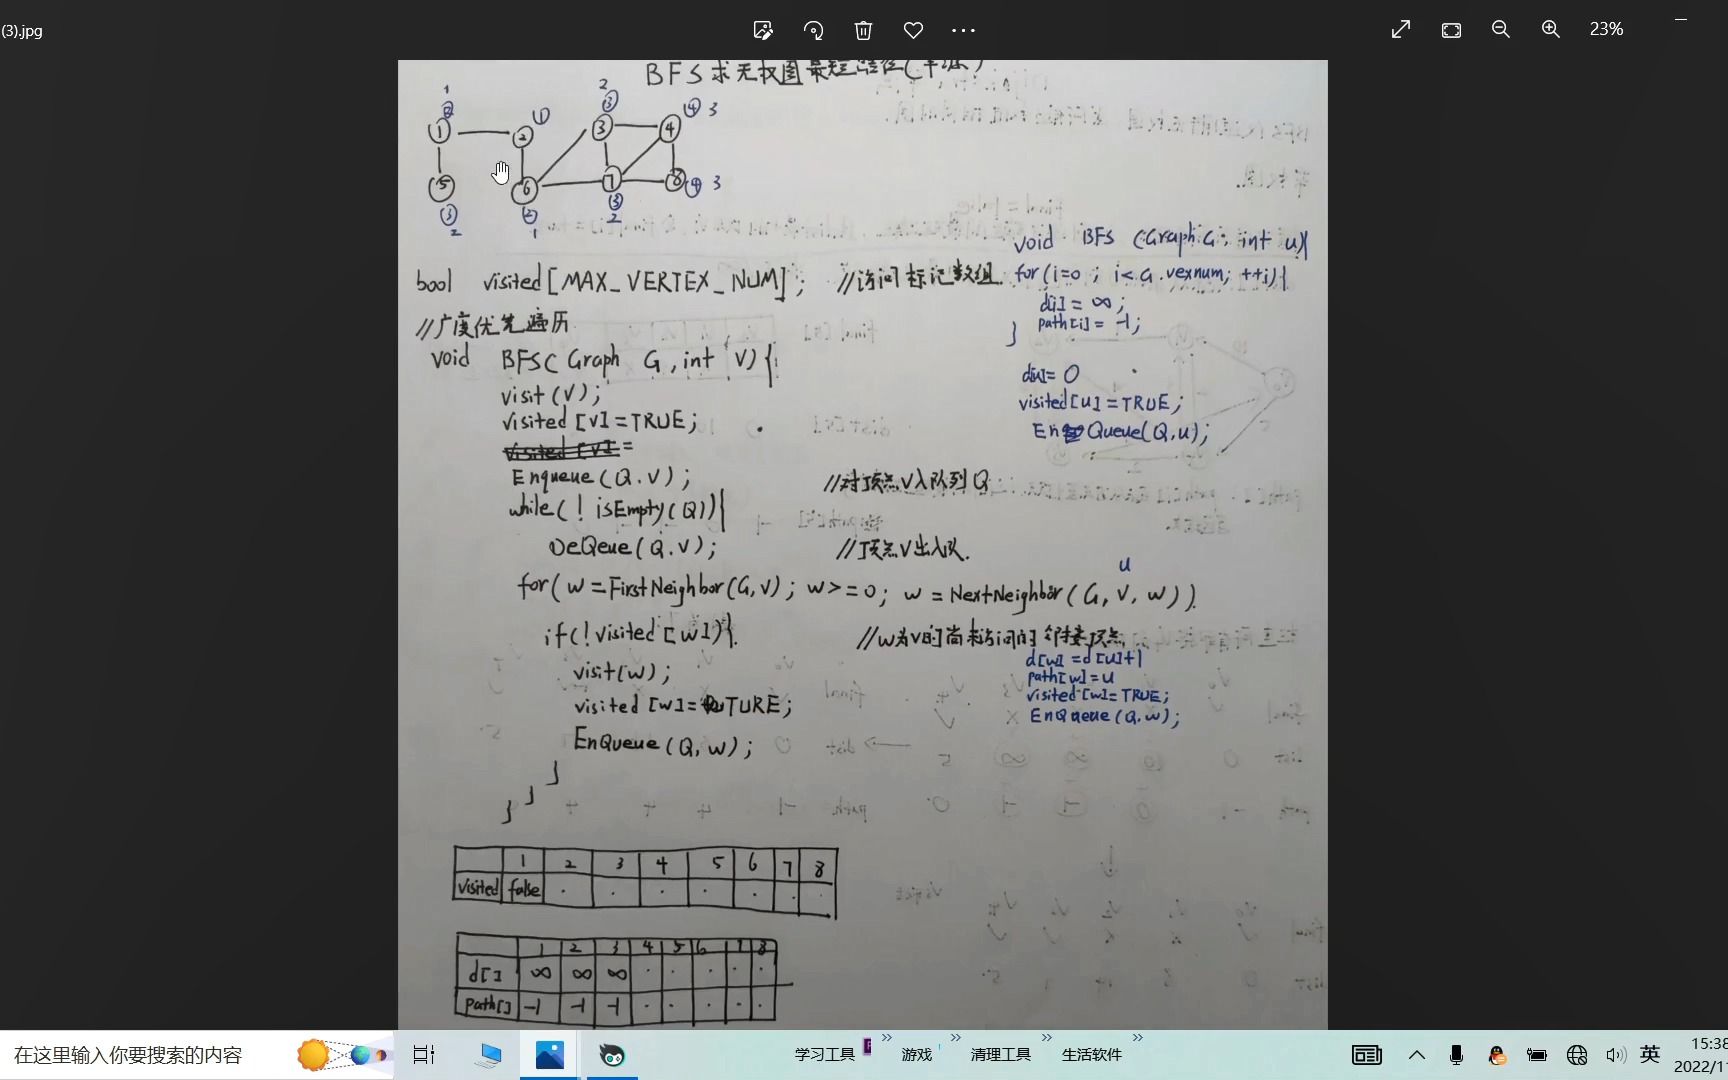 (3).jpg
23%
BFS求无权图最短路径(单源)
1
②
①
2
③
④ 3
① ② ③ ④
⑤ ⑥ ⑦ ⑧
④ 3
③
2
②
1
③
2
void BFS (Graph G, int u){
bool visited[MAX_VERTEX_NUM]; //访问标记数组.
for(i=0; i<G.vexnum; ++i){
d[i]=∞;
path[i]=-1;
}
//广度优先遍历
void BFS(Graph G,int V){
d[u]=0
visit(V);
visited[u]=TRUE;
visited [v]=TRUE;
EnQueue(Q,u);
visited [v]=
Enqueue(Q.V); //对顶点V入队列Q
while(! isEmpty(Q)){
DeQeue(Q.V); //顶点V出入队.
u
for(w=FirstNeighbor(G,V); w>=0; w=NextNeighbor(G,V,w))
if(!visited[w]){ //w为V的尚未访问的邻接顶点
d[w]=d[u]+1
visit(w);
path[w]=u
visited [w]=TURE;
visited[w]=TRUE;
EnQueue(Q.w);
EnQueue(Q,w);
}
}
}
1 2 3 4 5 6 7 8
visited false . . . . . . .
1 2 3 4 5 6 7 8
d[] ∞ ∞ ∞ . . . . .
path[] -1 -1 -1 . . . . .
在这里输入你要搜索的内容
学习工具
游戏
清理工具
生活软件
英
15:38
2022/1